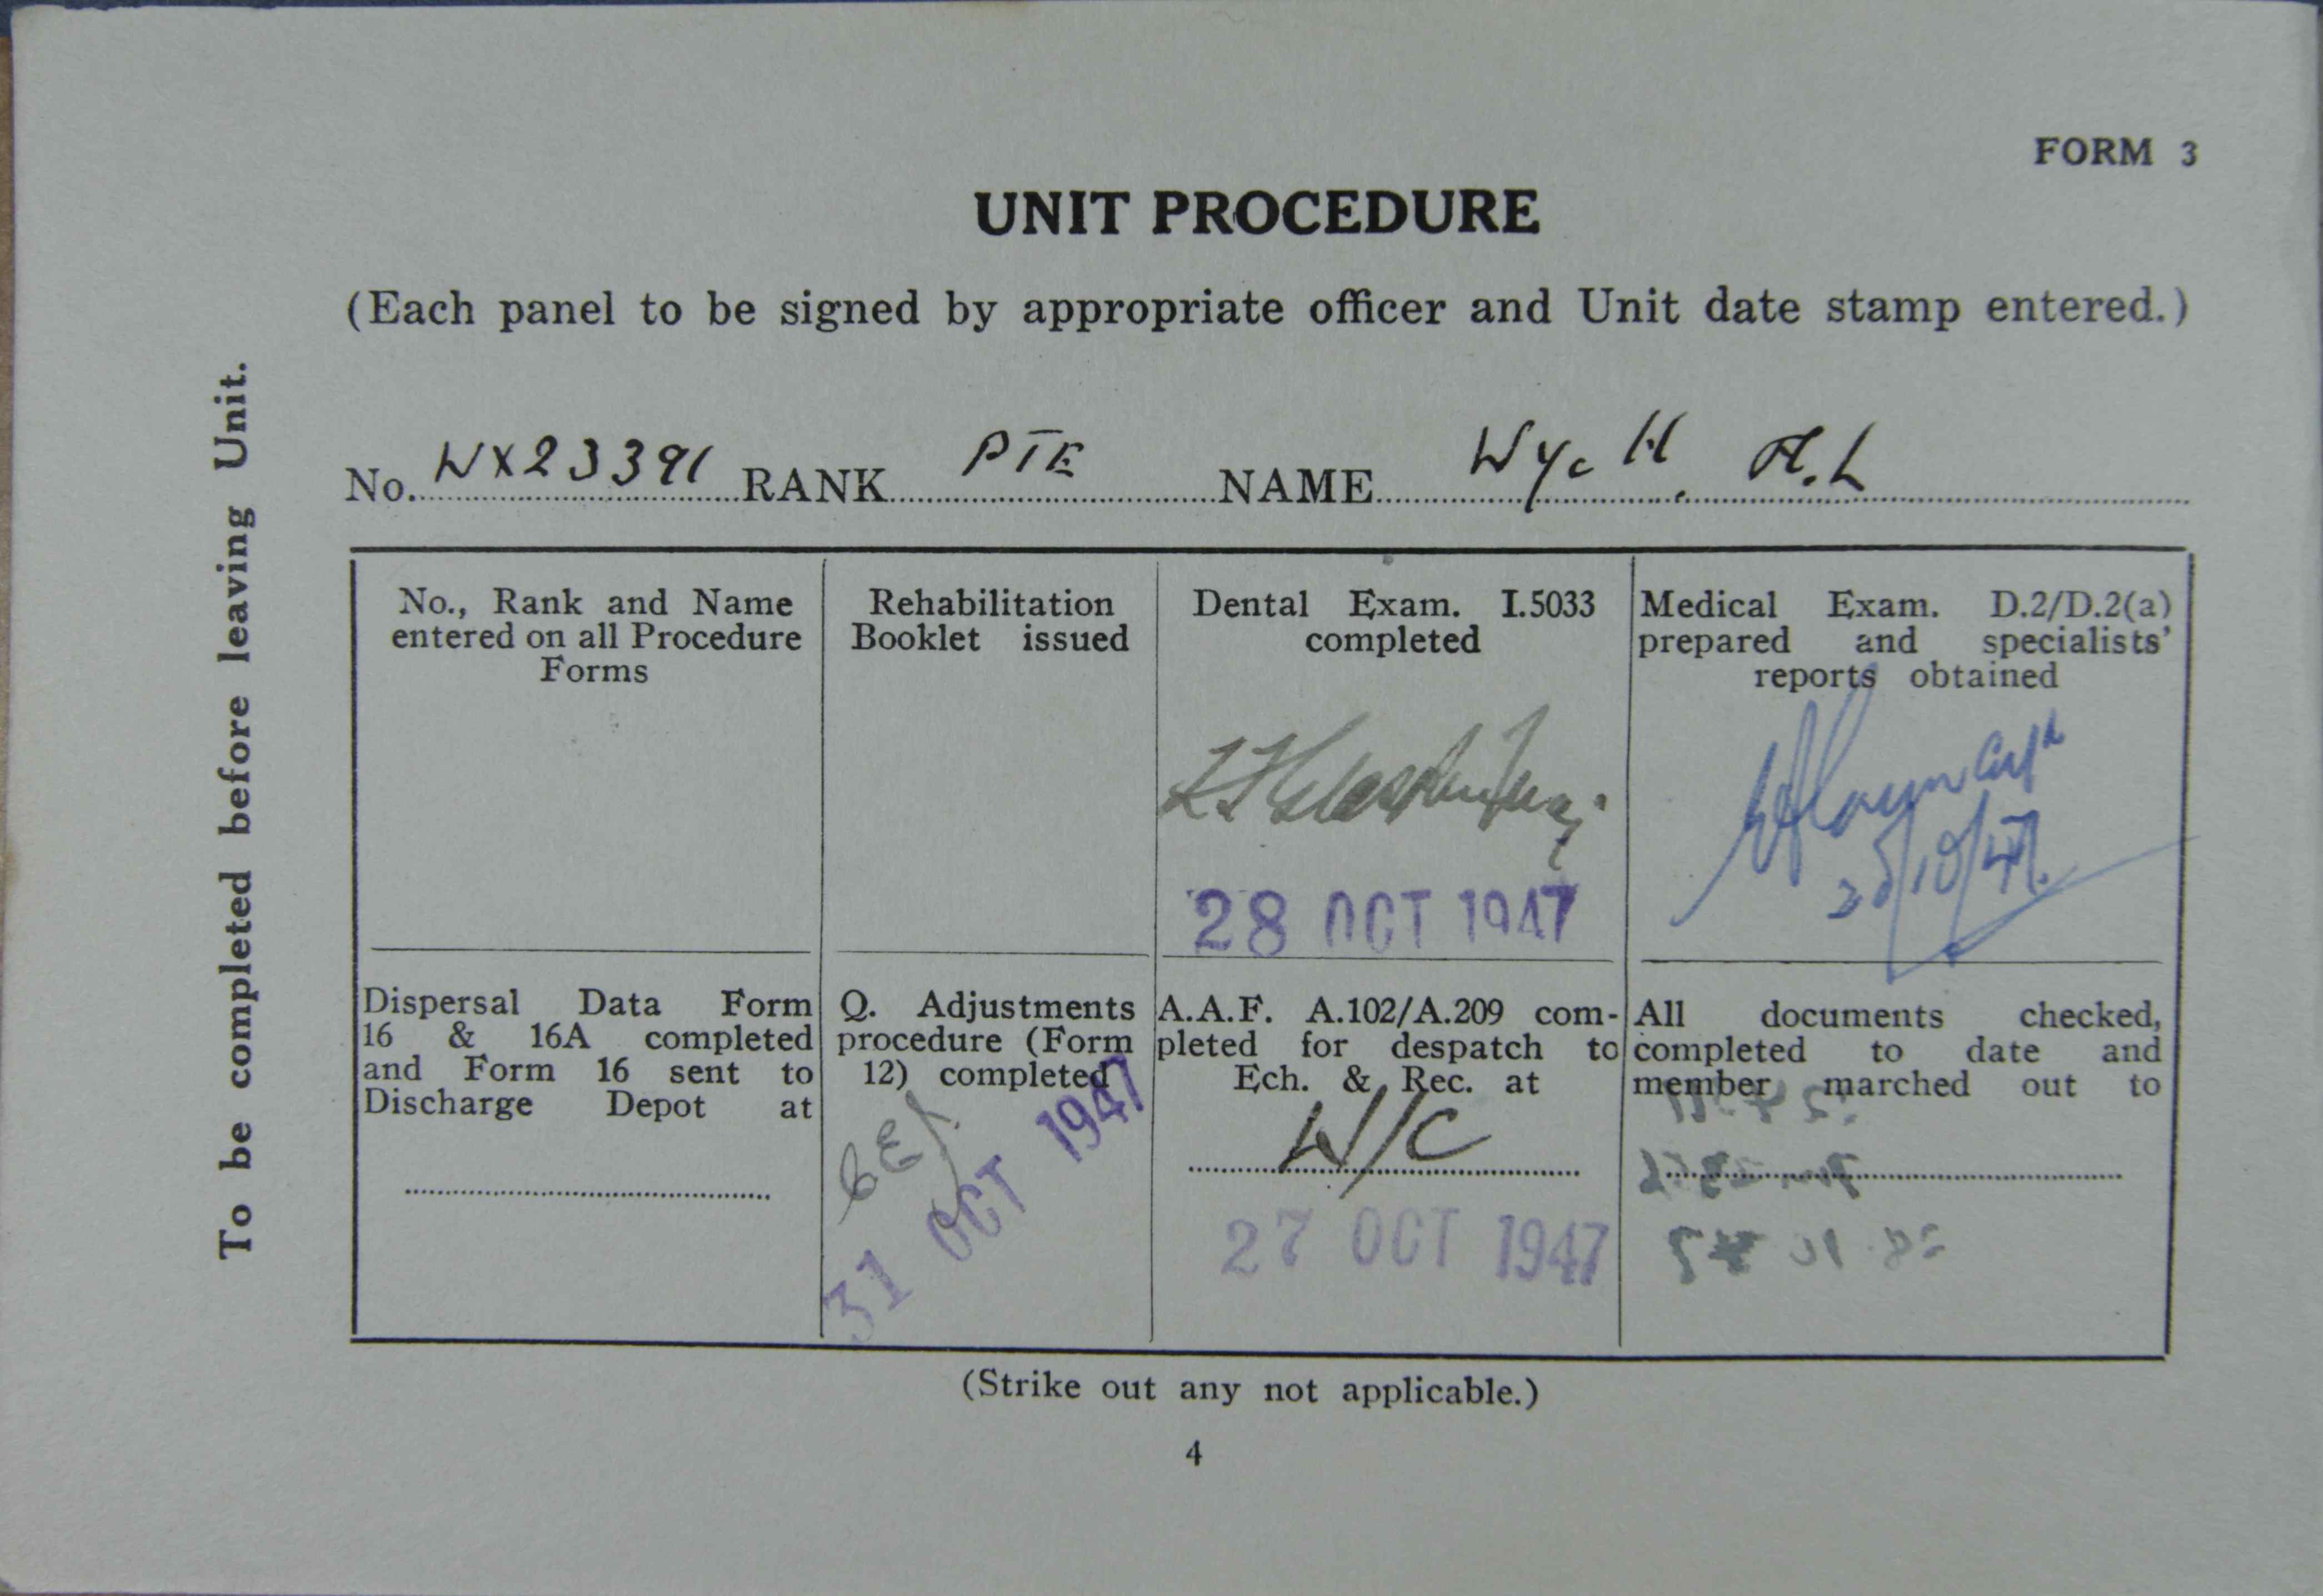 FORM 3
UNIT PROCEDURE
(Each panel to be signed by appropriate officer and Unit date stamp entered.)
To be completed before leaving Unit.
No. WX23391 RANK PTE NAME Wych. A.L
No., Rank and Name
entered on all Procedure
Forms
Rehabilitation
Booklet issued
Dental Exam. I.5033
completed
28 OCT 1947
Medical Exam. D.2/D.2(a)
prepared and specialists'
reports obtained
Capt
28/10/47.
Dispersal Data Form
16 & 16A completed
and Form 16 sent to
Discharge Depot at
Q. Adjustments
procedure (Form
12) completed
31 OCT 1947
A.A.F. A.102/A.209 com-
pleted for despatch to
Ech. & Rec. at
W/C
27 OCT 1947
All documents checked,
completed to date and
member marched out to
(Strike out any not applicable.)
4